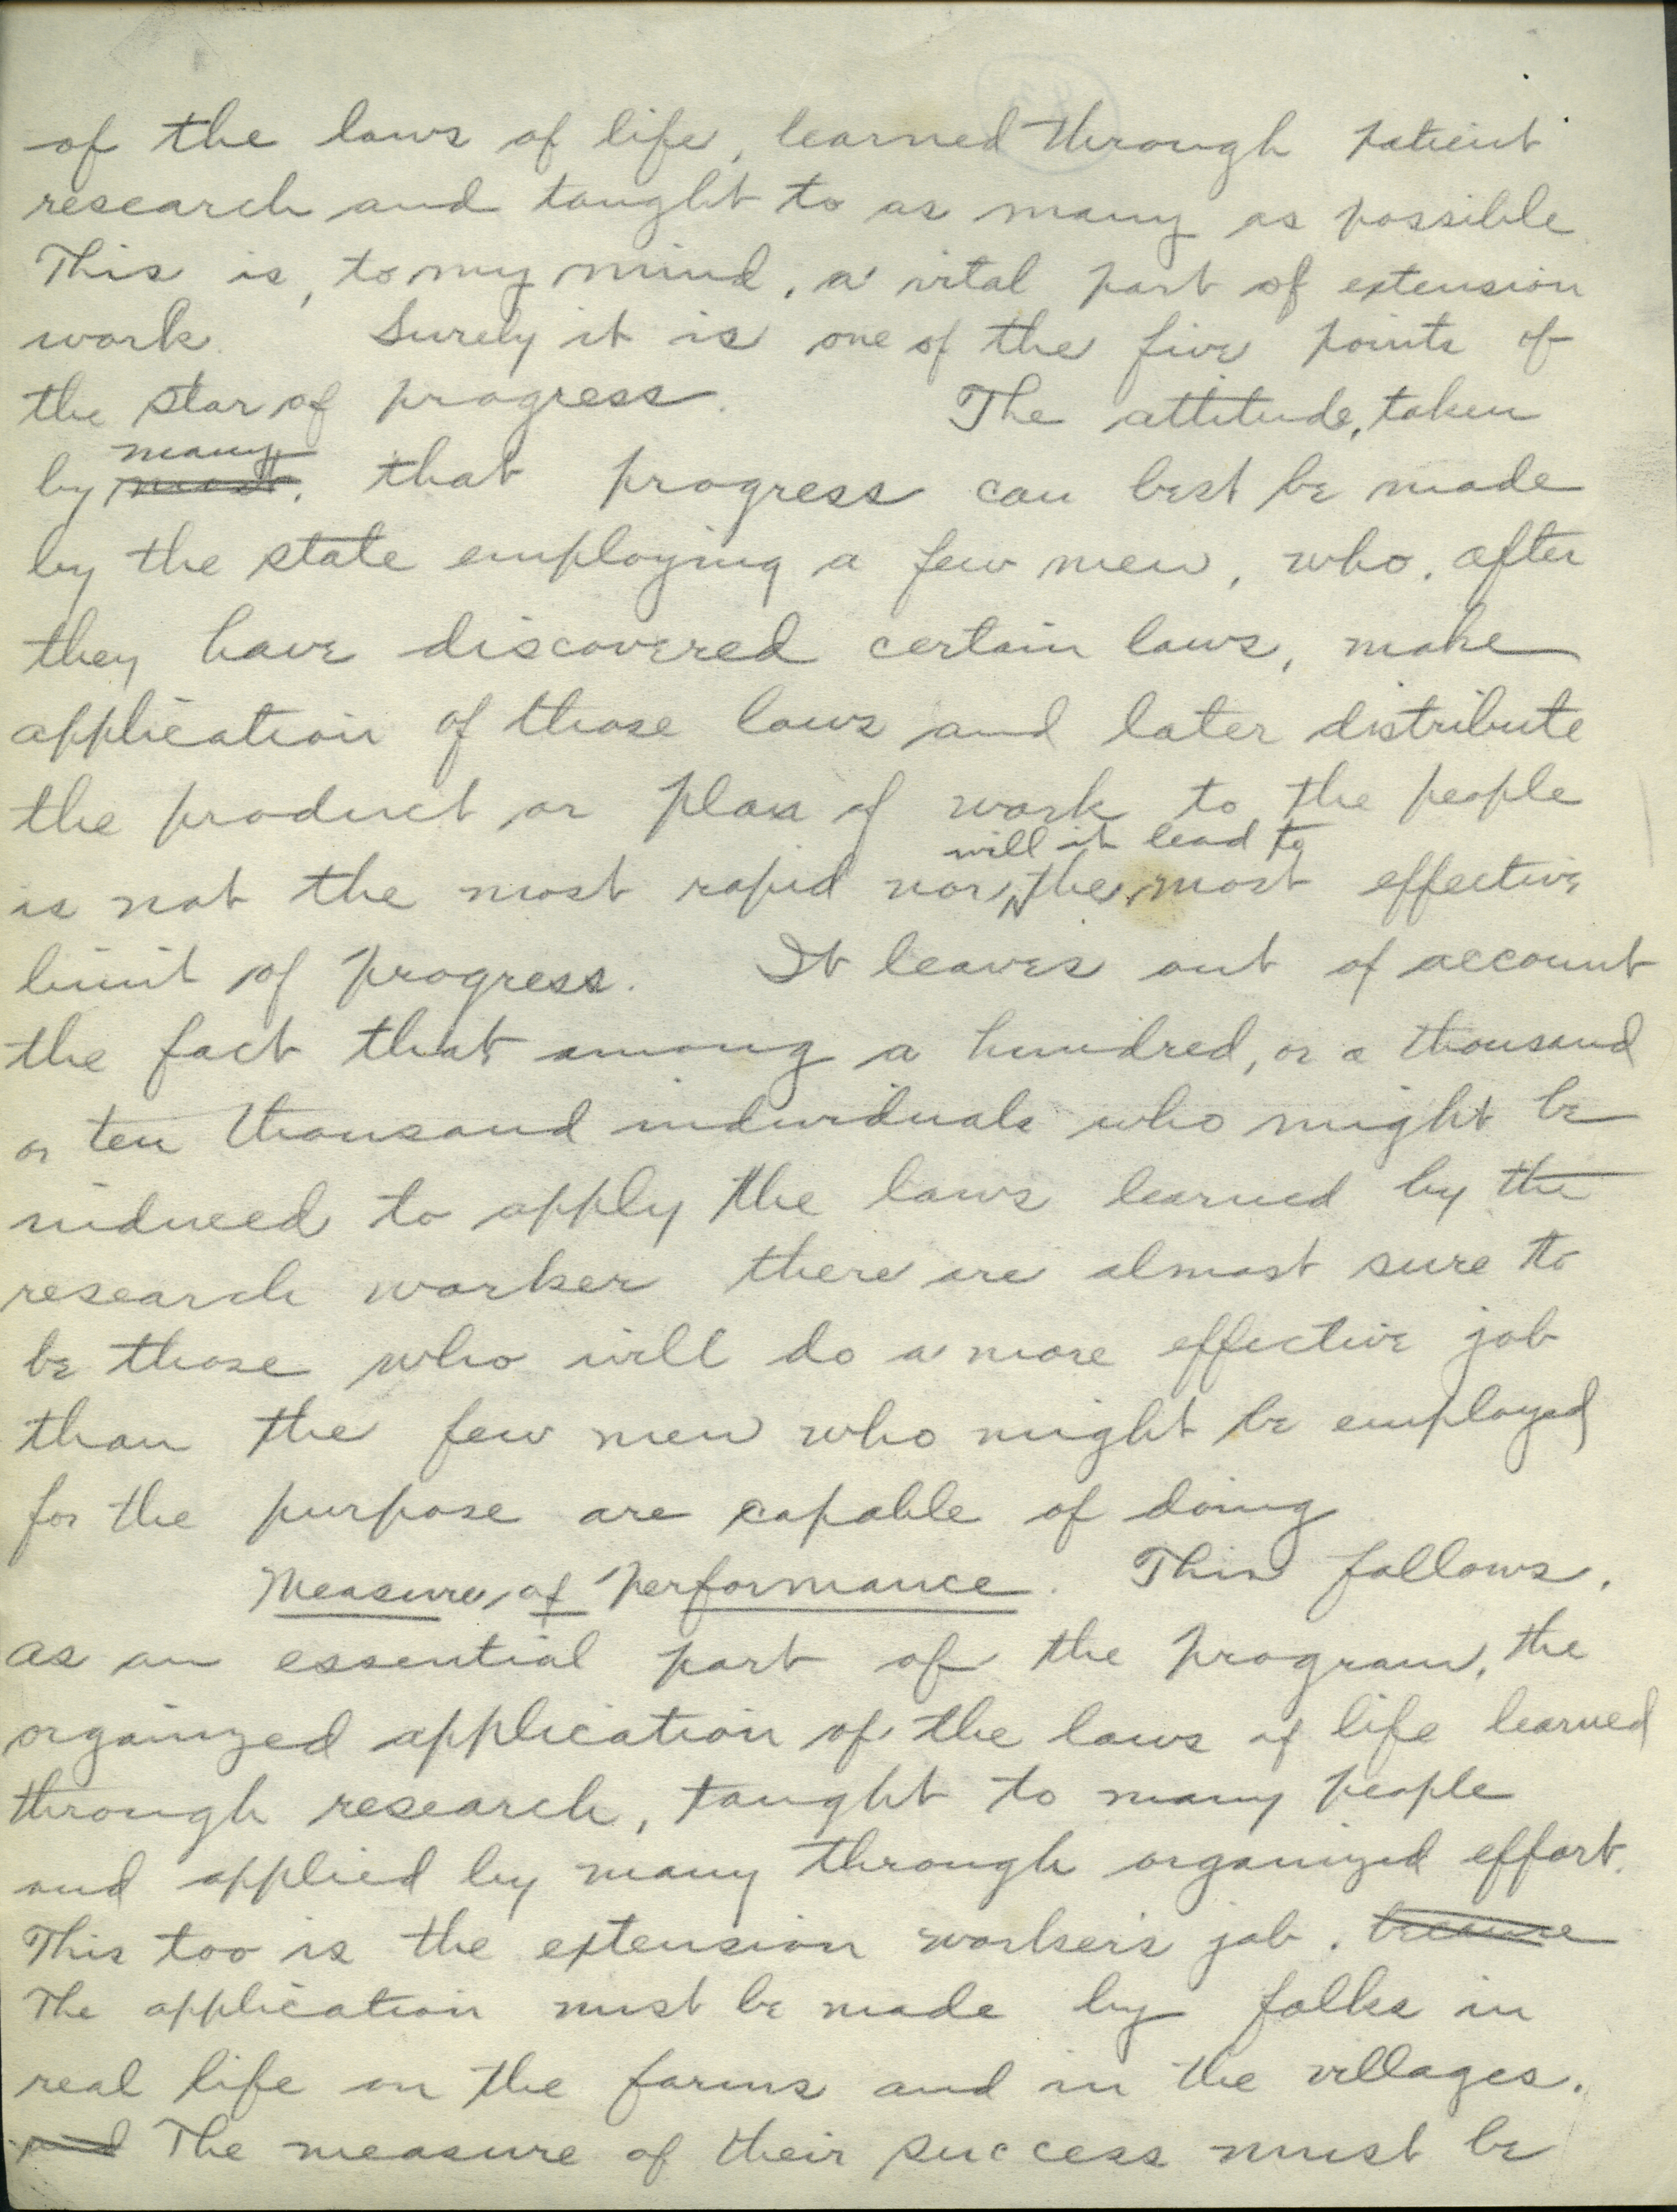 of the laws of life, learned through patient
research and taught to as many as possible
This is, to my mind, a vital part of extension
work. Surely it is one of the five points of
the star of progress. The attitude, taken
many
by most, that progress can best be made
by the state employing a few men, who, after
they have discovered certain laws, make
application of those laws and later distribute
the product or plan of work to the people
will it lead to
is not the most rapid nor the most effective
limit of progress. It leaves out of account
the fact that among a hundred, or a thousand
or ten thousand individuals who might be
induced to apply the laws learned by the
research worker there are almost sure to
be those who will do a more effective job
than the few men who might be employed
for the purpose are capable of doing
Measure of Performance. This follows,
as an essential part of the program, the
organized application of the laws of life learned
through research, taught to many people
and applied by many through organized effort.
This too is the extension worker's job. because
The application must be made by folks in
real life on the farms and in the villages.
and The measure of their success must be